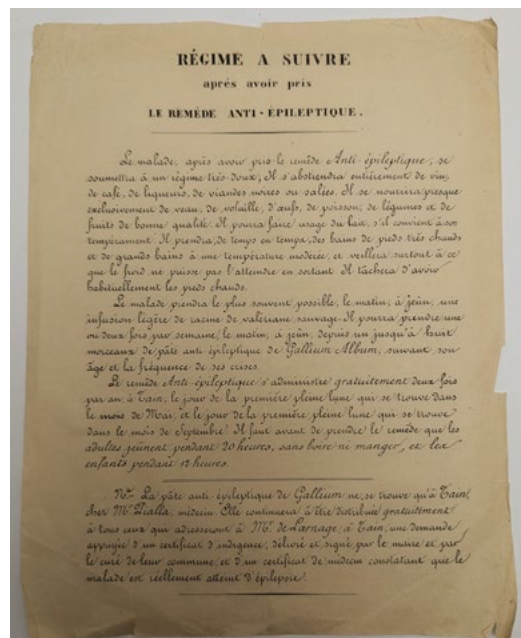 RÉGIME A SUIVRE
aprés avoir pris
LE REMÈDE ANTI-ÉPILEPTIQUE.
Le malade, après avoir pris le remède Anti-épileptique, se
soumettra à un régime très-doux; Il s'abstiendra entièrement de vin,
de café, de liqueurs, de viandes noires ou salées. Il se nourrira presque
exclusivement de veau, de volaille, d'œufs, de poisson, de légumes et de
fruits de bonne qualité. Il pourra faire usage du lait, s'il convient à son
tempérament. Il prendra, de temps en temps, des bains de pieds très chauds
et de grands bains à une température modérée, et veillera surtout à ce
que le froid ne puisse pas l'atteindre en sortant. Il tâchera d'avoir
habituellement les pieds chauds.
Le malade prendra le plus souvent possible, le matin, à jeûn, une
infusion légère de racine de valériane sauvage. Il pourra prendre une
ou deux fois par semaine, le matin, à jeûn, depuis un jusqu'à huit
morceaux de pâte anti-épileptique de Gallium Album, suivant son
âge et la fréquence de ses crises.
Le remède Anti-épileptique s'administre gratuitement deux fois
par an, à Tain, le jour de la première pleine lune qui se trouve dans
le mois de Mai, et le jour de la première pleine lune qui se trouve
dans le mois de Septembre. Il faut avant de prendre le remède que les
adultes jeûnent pendant 20 heures, sans boire ni manger, et les
enfants pendant 12 heures.
La pâte anti-épileptique de Gallium ne se trouve qu'à Tain,
chez Mr. Dialla, médecin. Elle continuera à être distribuée gratuitement
à tous ceux qui adresseront à Mr. de Larnage, à Tain, une demande
appuyée d'un certificat d'indigence, délivré et signé par le maire et par
le curé de leur commune, et d'un certificat de médecin constatant que le
malade est réellement atteint d'épilepsie.